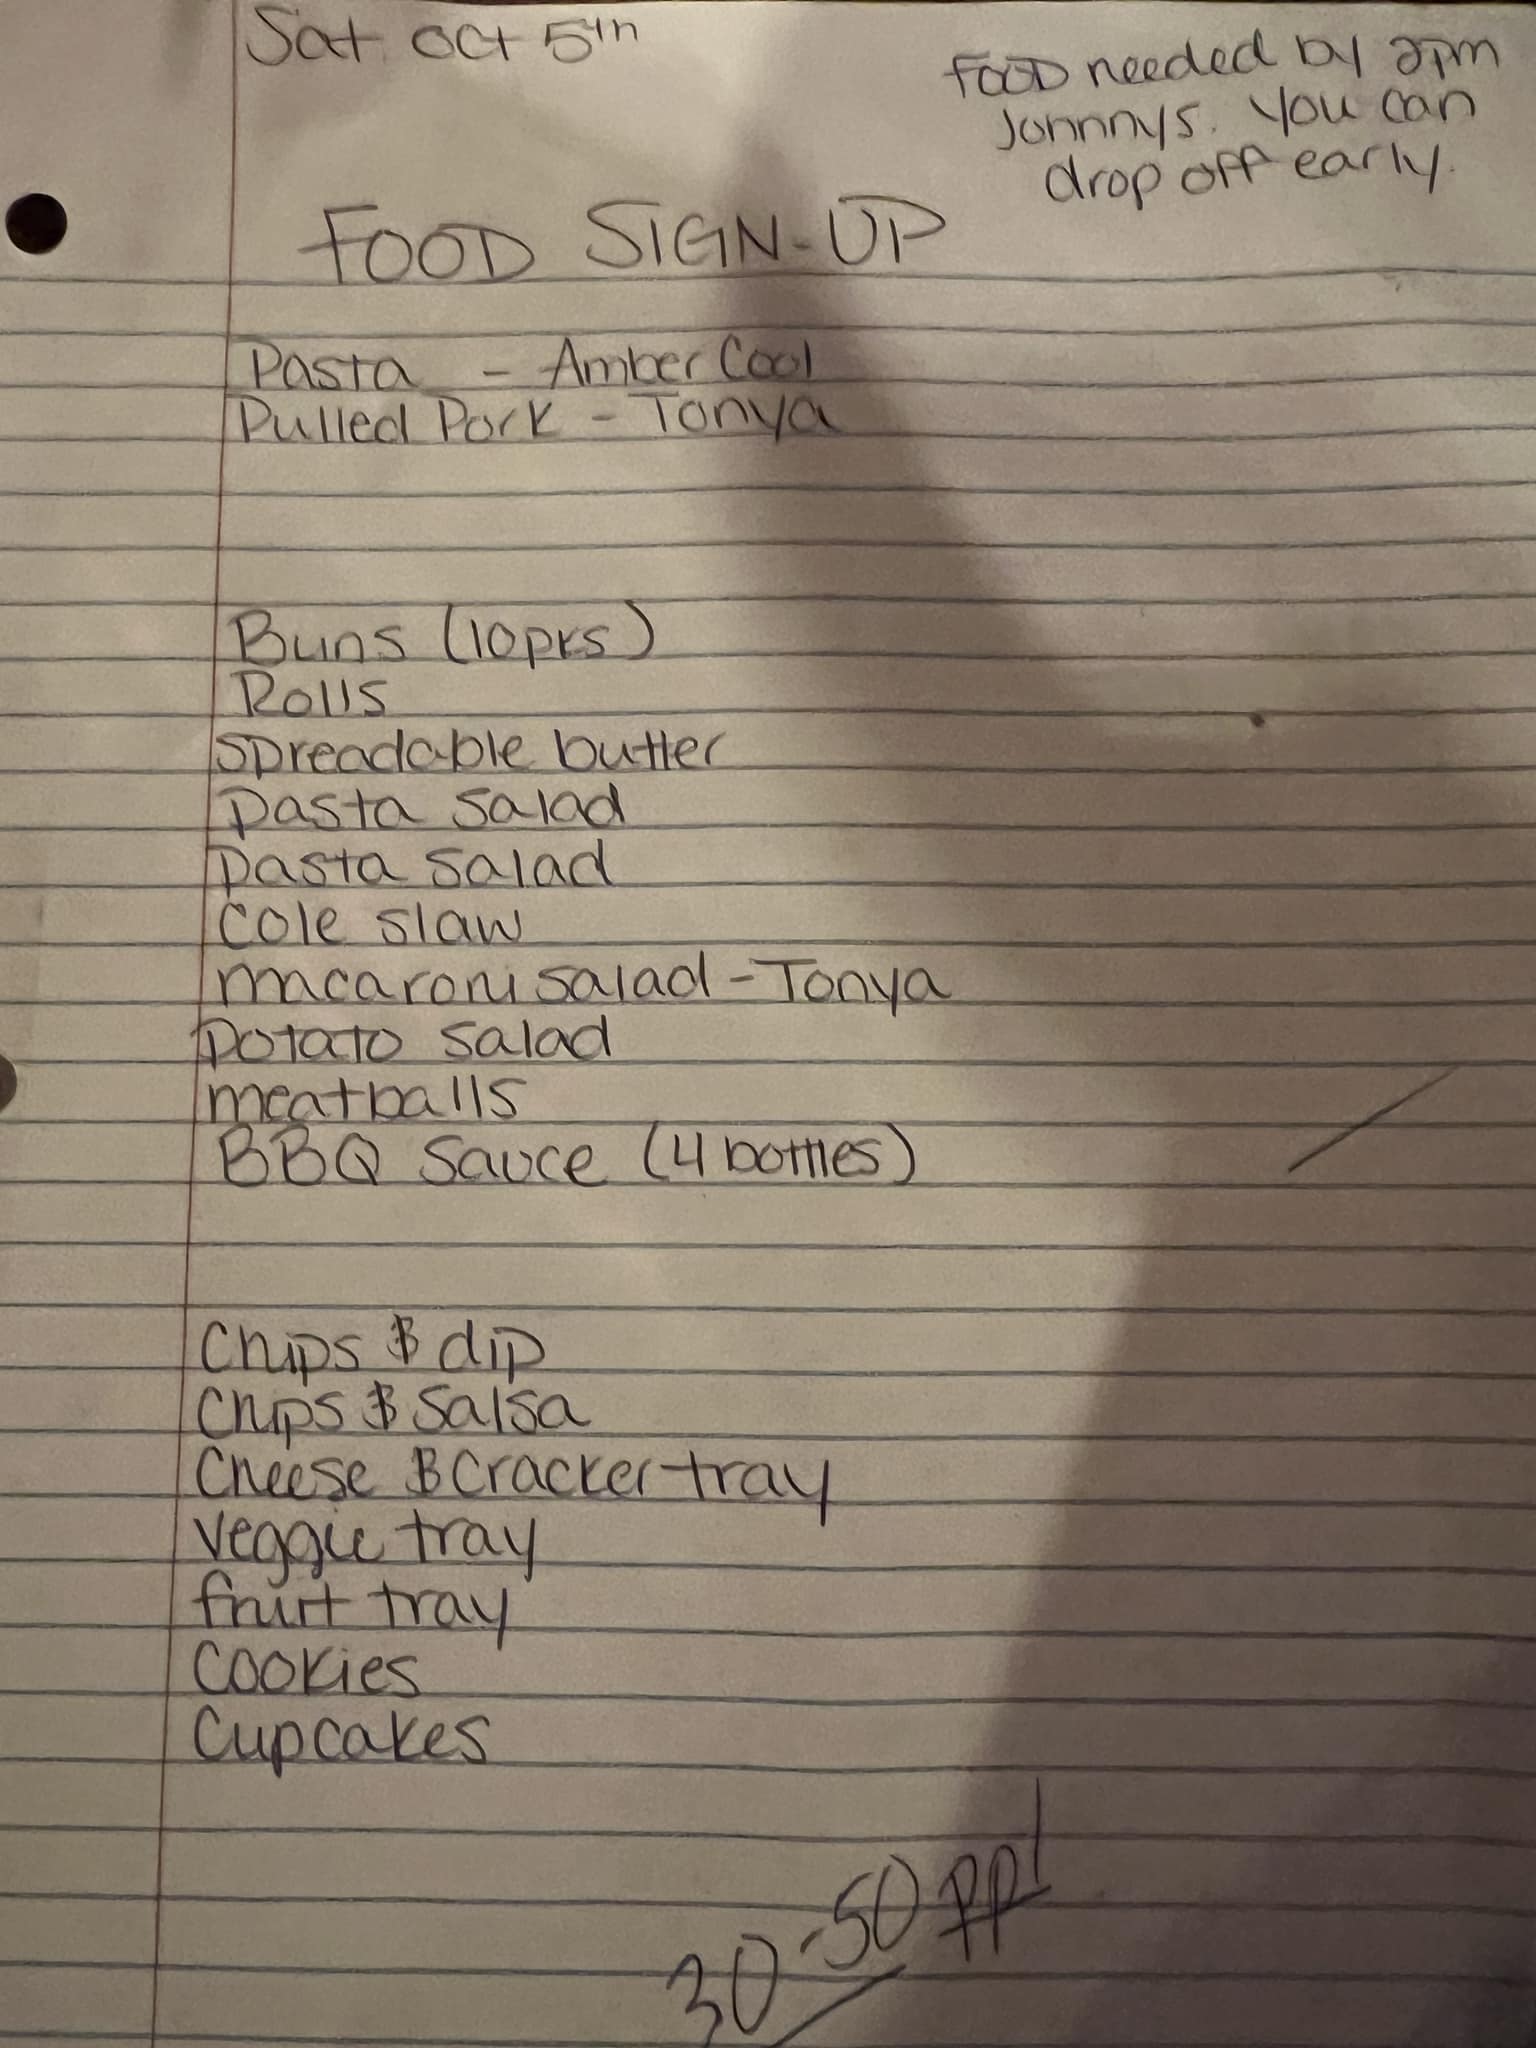 Sat Oct 5th
FOOD needed by 2pm
Johnnys. You can
drop off early.
FOOD SIGN-UP
Pasta - Amber Cool
Pulled Pork - Tonya
Buns (10pks)
Rolls
spreadable butter
Pasta salad
Pasta salad
Cole slaw
macaroni salad - Tonya
Potato salad
meatballs
BBQ Sauce (4 bottles)
Chips & dip
Chips & Salsa
Cheese & Cracker tray
veggie tray
fruit tray
Cookies
Cupcakes
30-50 ppl